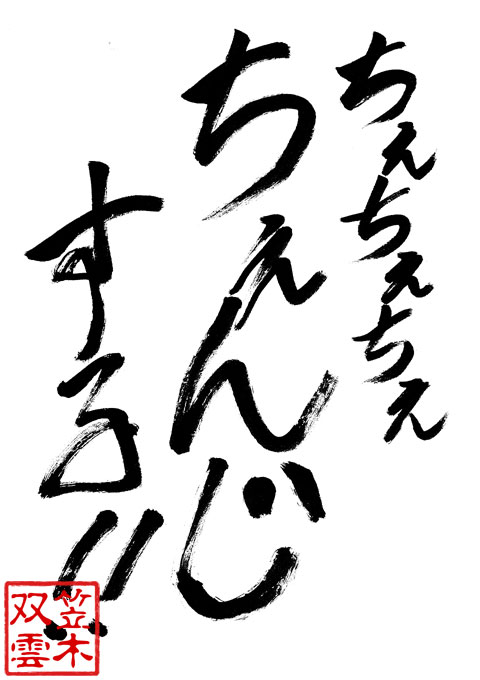 ちぇちぇちぇ
ちぇんじ
する!!
笠木
双雲